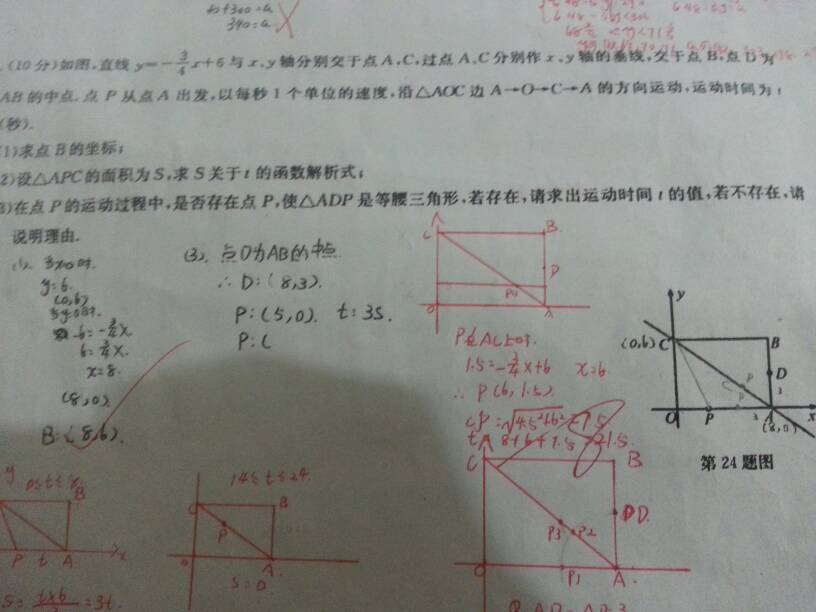 300=a
340=a
.(10分)如图,直线 y=-3/4x+6 与 x、y 轴分别交于点 A、C,过点 A、C 分别作 x、y 轴的垂线,交于点 B,点 D 为
AB 的中点. 点 P 从点 A 出发,以每秒 1 个单位的速度,沿△AOC 边 A→O→C→A 的方向运动,运动时间为 t
(秒).
(1)求点 B 的坐标;
2)设△APC 的面积为 S,求 S 关于 t 的函数解析式;
3)在点 P 的运动过程中,是否存在点 P,使△ADP 是等腰三角形,若存在,请求出运动时间 t 的值,若不存在,请
说明理由.
当x=0时.
y=6.
(0,6)
当y=0时.
-6=-3/4x.
6=3/4x.
x=8.
(8,0)
B:(8,6).
(3). 点D为AB的中点.
∴D:(8,3).
P:(5,0). t:3s.
P:(
C
B
D
P4
O
A
P在AC上时.
1.5=-3/4x+6 x=6.
∴P(6,1.5).
CP=√4.5²+6²=7.5.
8+6+7.5=21.5.
y
(0,6)
C
B
D
P
3
O
P
A
x
(8,0)
第 24 题图
y
B
P
t
A
x
S=t×6/2=3t.
14≤t≤24.
C
B
P
o
A
S=0
C
B
D
P3
P2
O
P1
A.